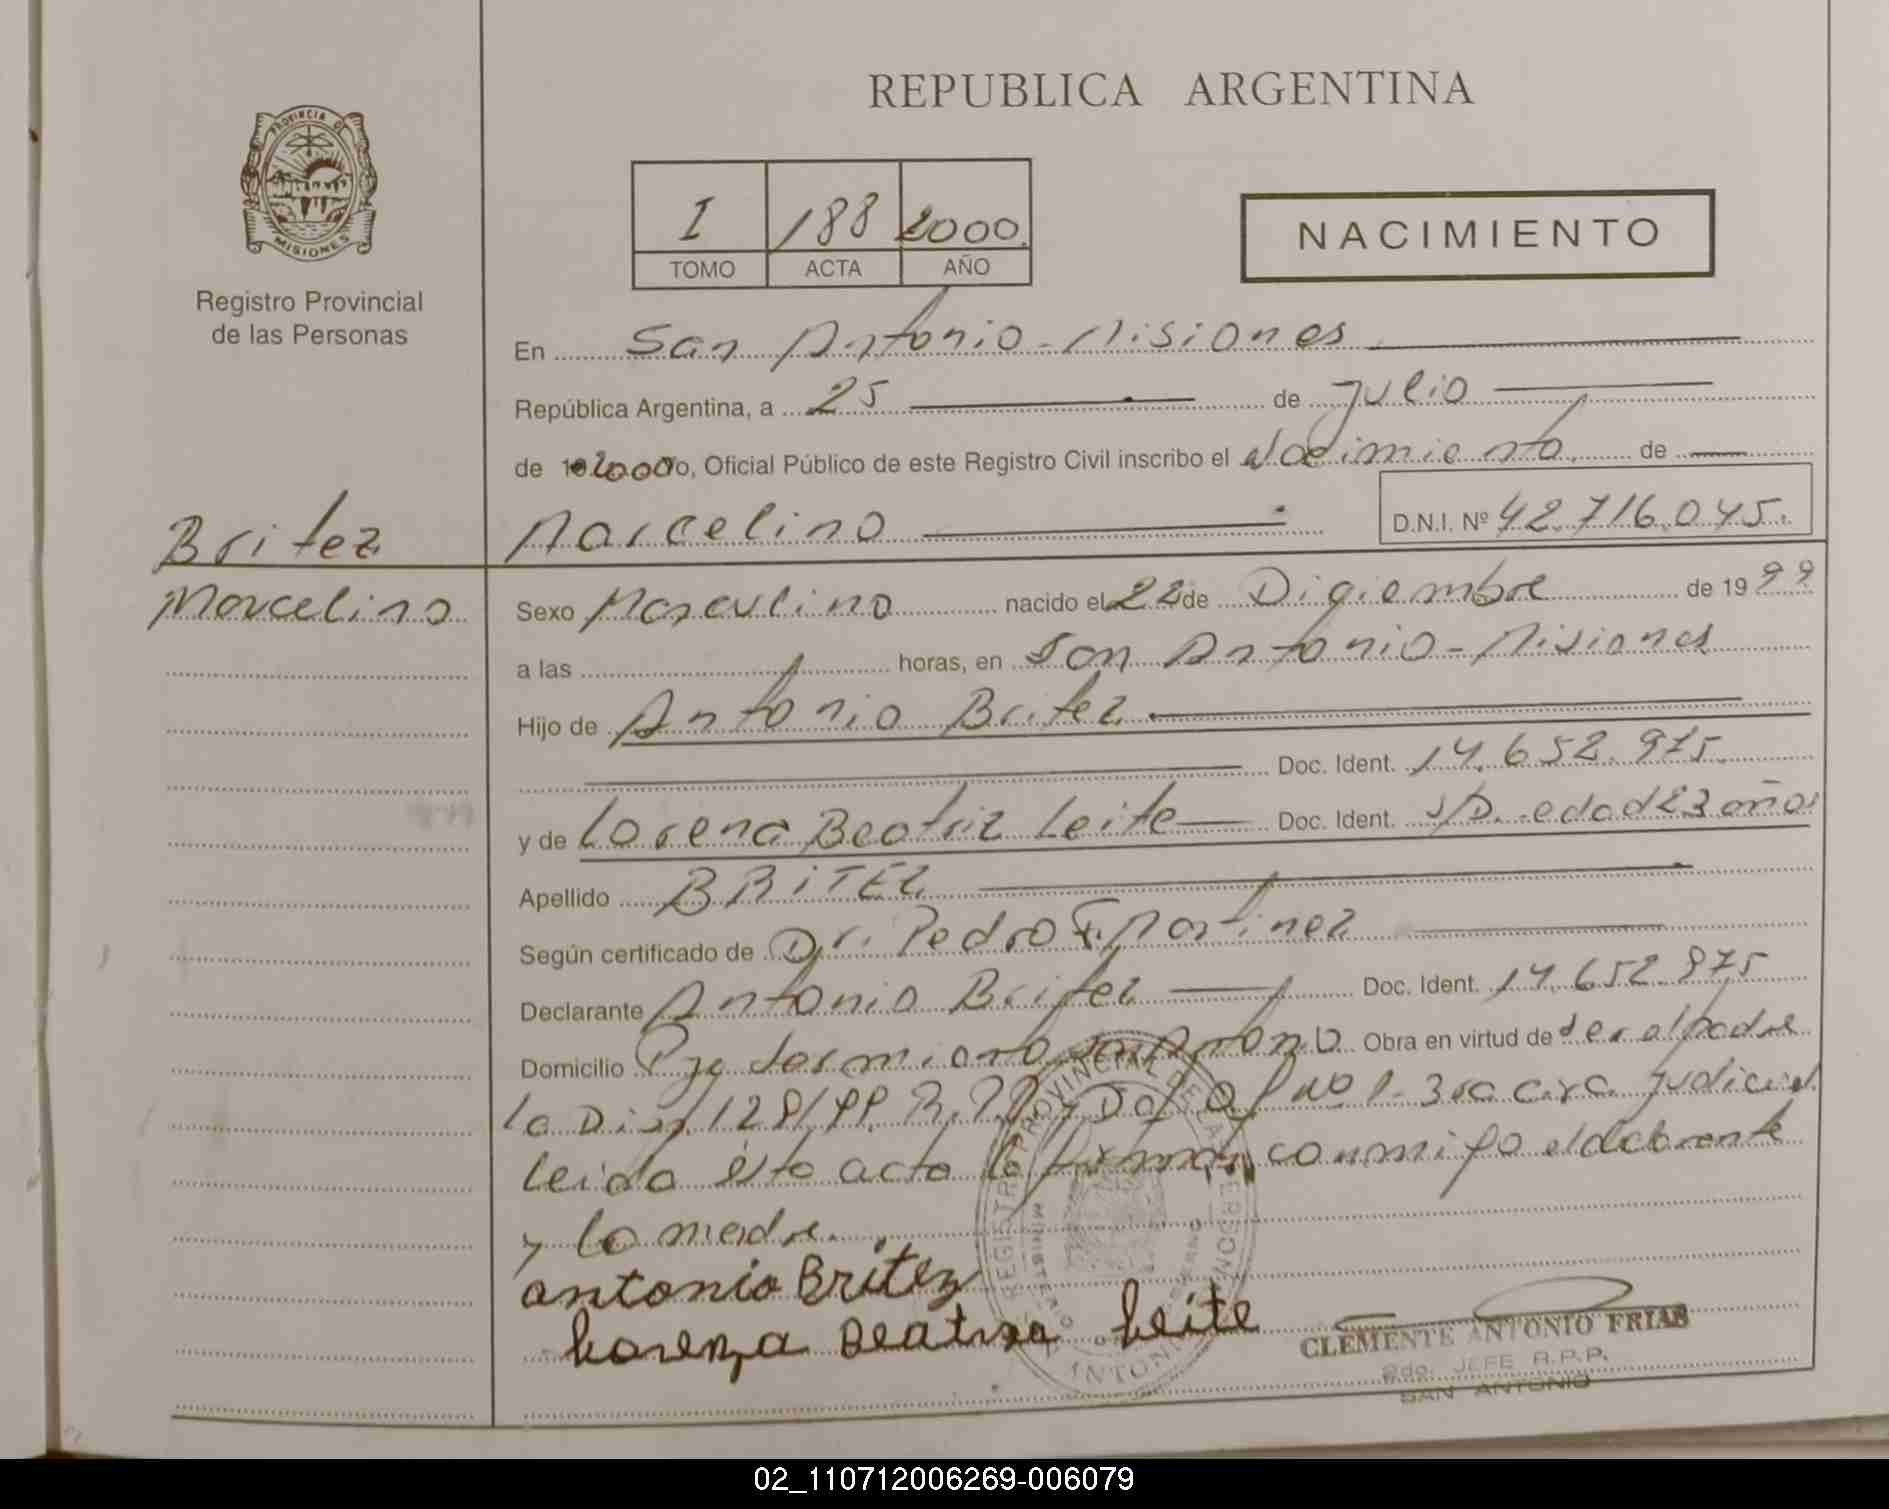 REPUBLICA ARGENTINA
PROVINCIA DE
MISIONES
Registro Provincial
de las Personas
I 188 2000
TOMO ACTA AÑO
NACIMIENTO
En San Antonio - Misiones
República Argentina, a 25 de Julio
de 2000 yo, Oficial Público de este Registro Civil inscribo el Nacimiento de
Marcelino D.N.I. Nº 42.716.045.
Britez
Marcelino
Sexo Masculino nacido el 22 de Diciembre de 1999
a las horas, en San Antonio - Misiones
Hijo de Antonio Britez
Doc. Ident. 14.652.975.
y de Lorena Beatriz Leite Doc. Ident. S/D. edad 23 años
Apellido BRITEZ
Según certificado de Dr. Pedro F. Martinez
Declarante Antonio Britez Doc. Ident. 14.652.875
Domicilio Antonio Obra en virtud de ser el padre
la 128/99 R.P.P. y Nº 1 - 3ra Judicial
leida ésta acta la firman conmigo el declarante
y la madre.
antonio Britez
Lorenza Beatriz Leite
REGISTRO PROVINCIAL DE LAS PERSONAS
CLEMENTE ANTONIO FRIAS
2do. JEFE R.P.P.
SAN ANTONIO
02_110712006269-006079